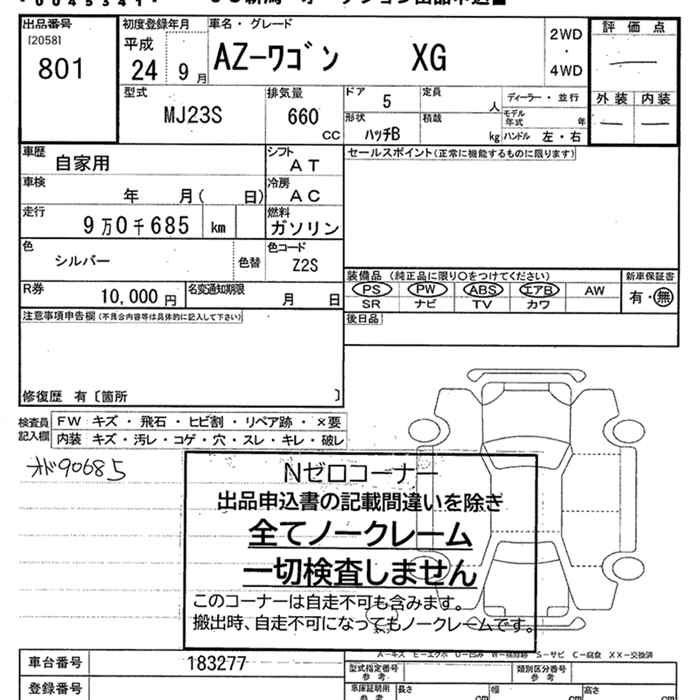 出品番号 初度登録年月 車名・グレード 評価点
[2058]
801 平成 24 9月 AZ-ワゴン XG 2WD・4WD
型式 排気量 ドア 5 定員 人 ディーラー・並行 外装 内装
MJ23S 660 CC 形状 ハッチB 積載 kg モデル年式 年 ハンドル 左・右
車歴 自家用 シフト AT セールスポイント(正常に機能するものに限ります)
車検 年 月( 日) 冷房 AC
走行 9万0千685 km 燃料 ガソリン
色 シルバー 色替 色コード Z2S
装備品 (純正品に限り○をつけてください) 新車保証書
R券 10,000円 名変通知期限 月 日 PS PW ABS エアB AW 有・無
SR ナビ TV カワ
注意事項申告欄(不具合内容等は具体的に記入して下さい) 後日品
修復歴 有〔箇所 〕
検査員記入欄 FW キズ・飛石・ヒビ割・リペア跡・×要
内装 キズ・汚レ・コゲ・穴・スレ・キレ・破レ
90685
Nゼロコーナー
出品申込書の記載間違いを除き
全てノークレーム
一切検査しません
このコーナーは自走不可も含みます。
搬出時、自走不可になってもノークレームです。
A-キズ E-エクボ U-凹み W-補修跡 S-サビ C-腐食 XX-交換済
車台番号 183277 型式指定番号 参考 類別区分番号 参考
登録番号 車庫証明用 参考 長さ cm 幅 cm 高さ cm